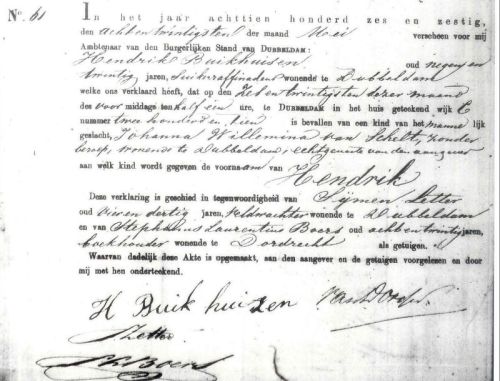 No. 61
In het jaar achttien honderd zes en zestig,
den achtentwintigsten der maand Mei verscheen voor mij
Ambtenaar van den Burgerlijken Stand van DUBBELDAM:
Hendrik Buikhuisen oud negen en
twintig jaren, Suikerraffinadeur wonende te Dubbeldam
welke ons verklaard heeft, dat op den zesentwintigsten dezer maand
des voor middags ten half een ure, te DUBBELDAM in het huis geteekend wijk C
nummer twee honderd en tien is bevallen van een kind van het mannelijk
geslacht, Johanna Willemina van Schelt, zonder
beroep, wonende te Dubbeldam, echtgenoote van den aangever
aan welk kind wordt gegeven de voornaam van
Hendrik
Deze verklaring is geschied in tegenwoordigheid van Sijmen Letter
oud vierendertig jaren, Veldwachter wonende te Dubbeldam
en van Stephanus Laurentius Boers oud achtentwintig jaren,
boekhouder wonende te Dordrecht als getuigen.
Waarvan dadelijk deze Akte is opgemaakt, aan den aangever en de getuigen voorgelezen en door
mij met hen onderteekend.
H Buikhuizen
S Letter
S L Boers